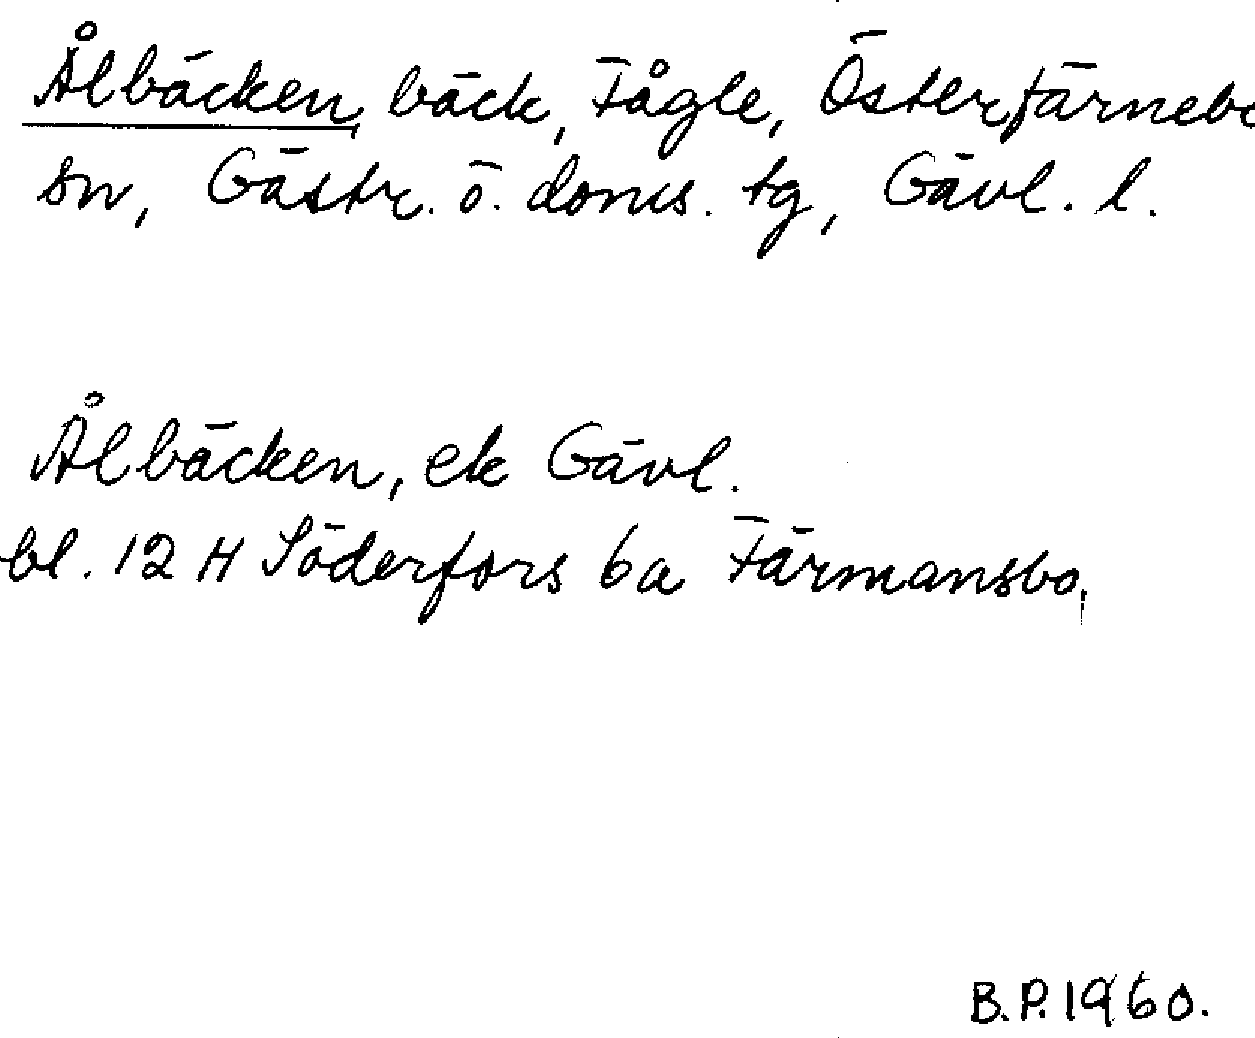 Ålbäcken, bäck, Fågle, Österfärnebo
sn, Gästr. ö. doms. tg, Gävl. l.
Ålbäcken, ek Gävl.
bl. 12 H Söderfors 6a Färmansbo,
B.P. 1960.